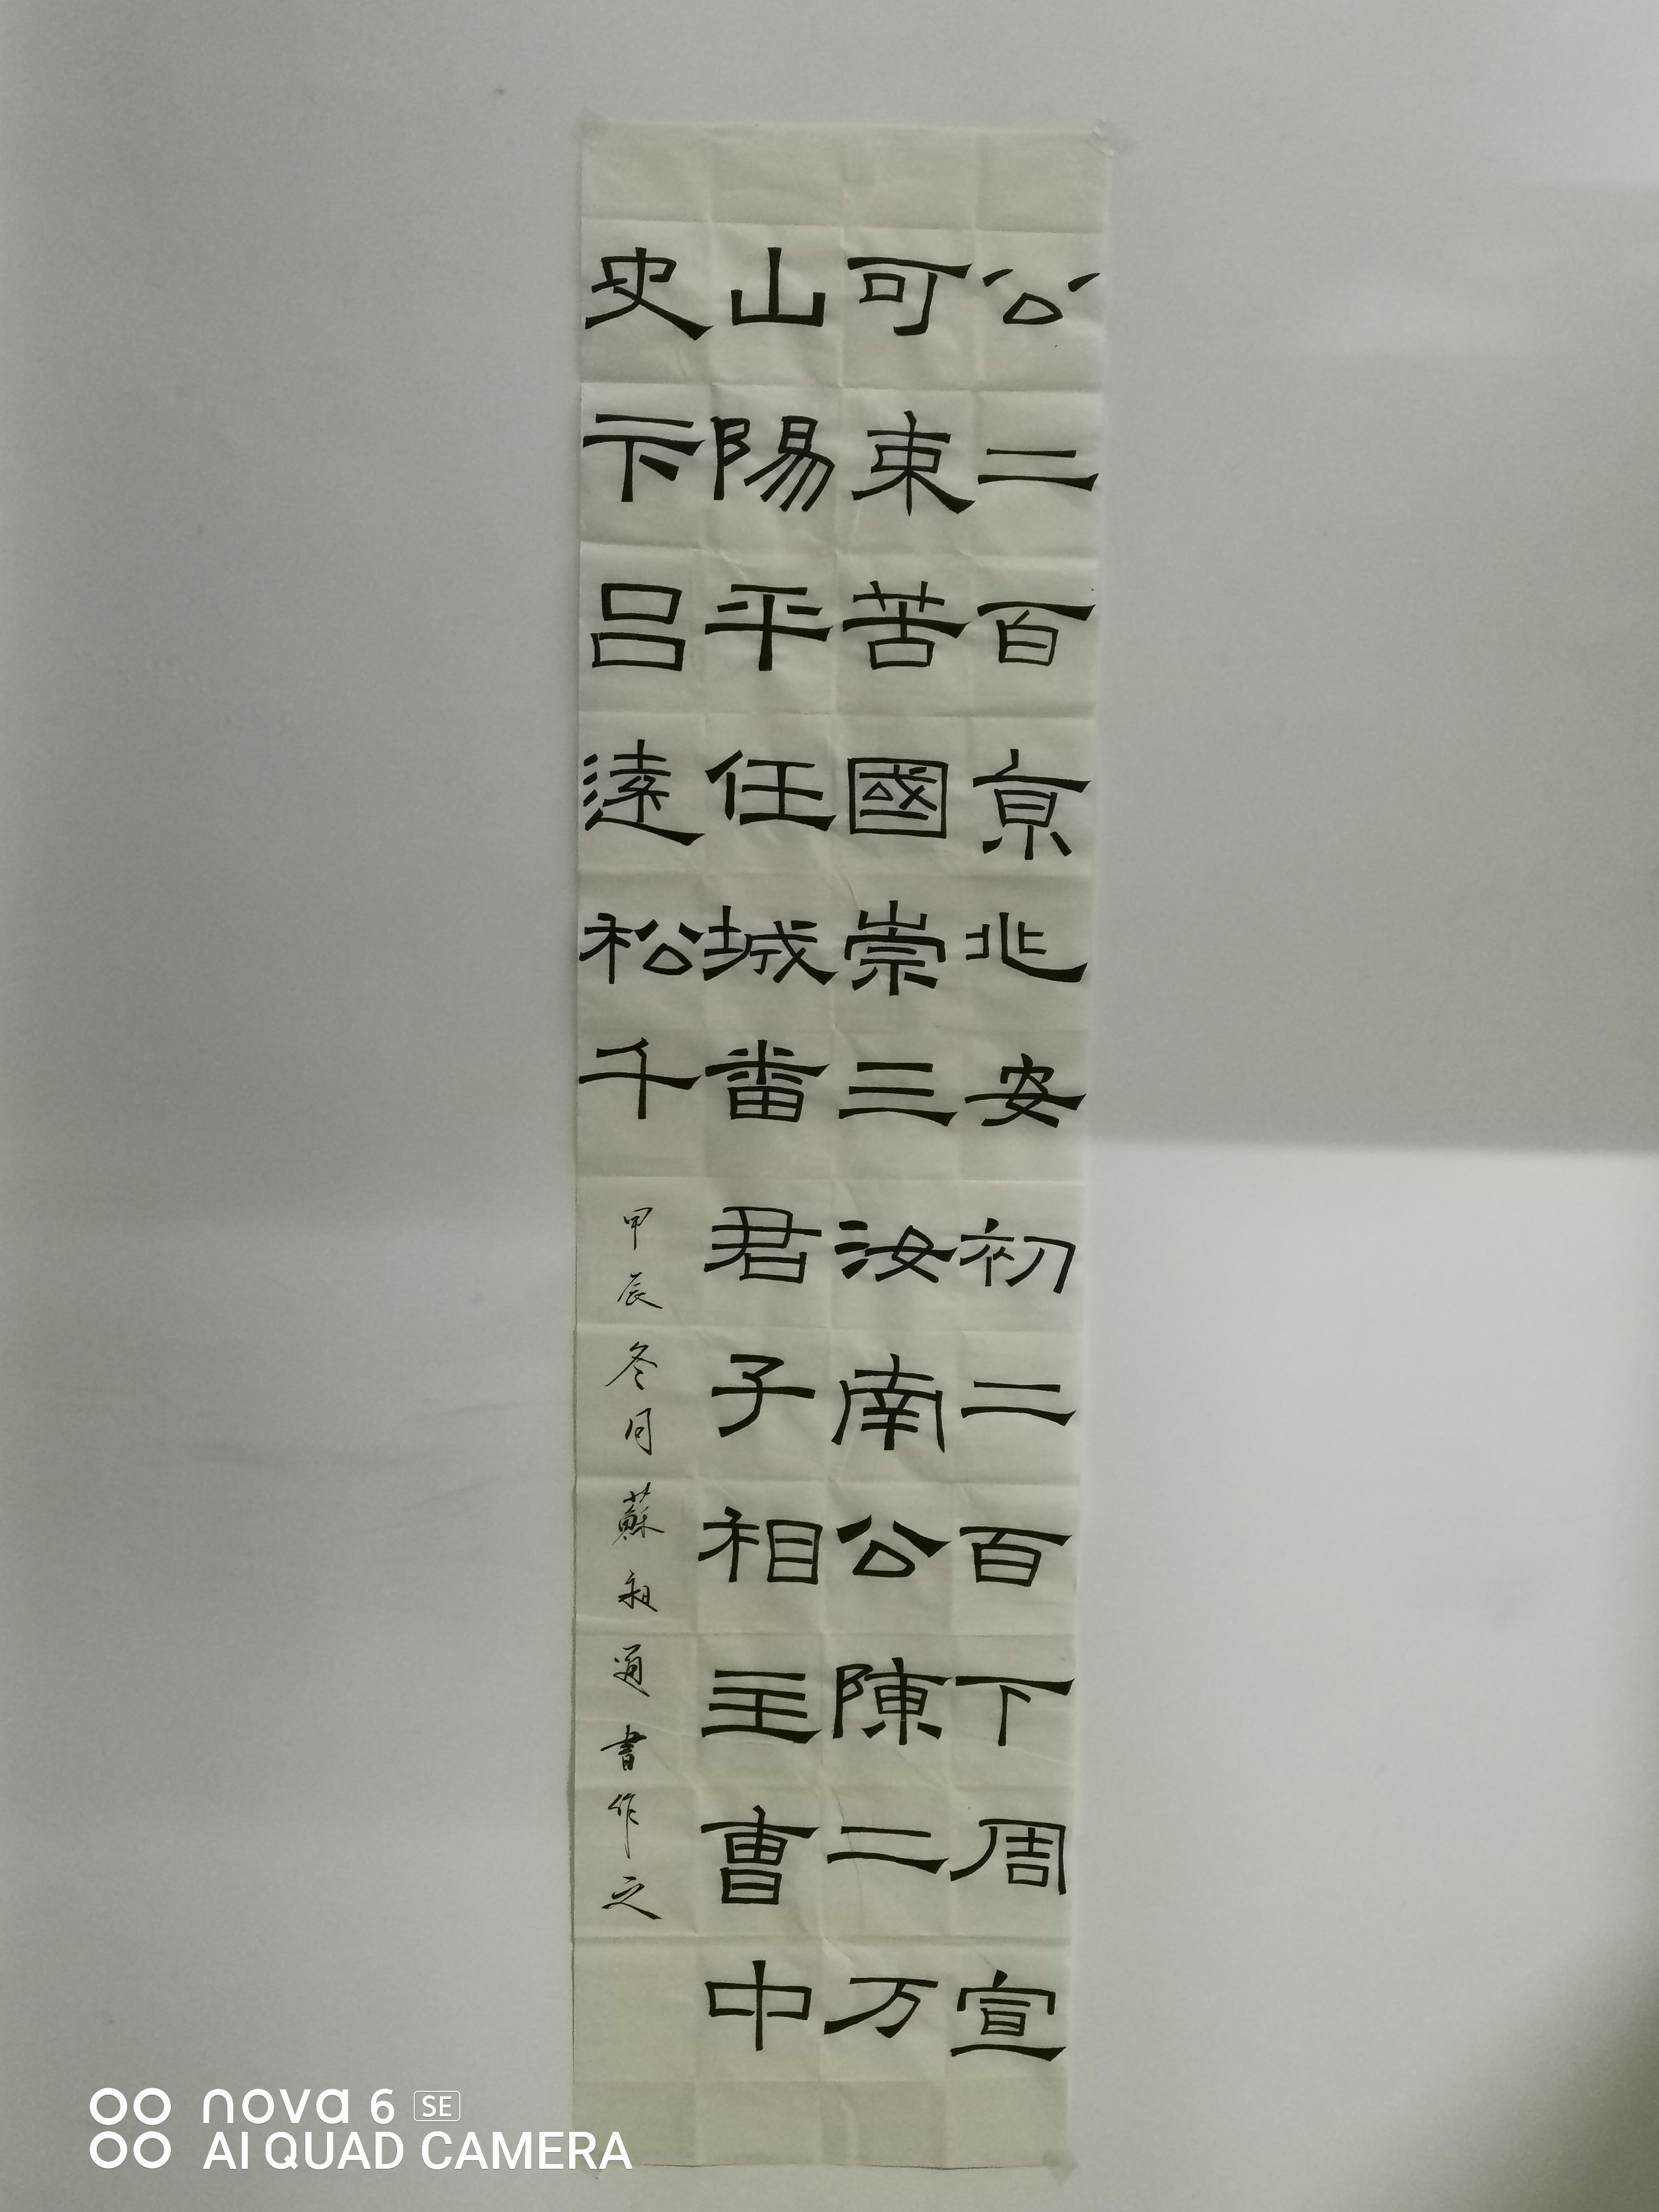 公二百京兆安初二百下周宣
可東苦國崇三汝南公陳二万
山陽平任城番君子相主曹中
史卞呂遠松千
甲辰冬月蘇祖通書作之
nova 6 SE
AI QUAD CAMERA